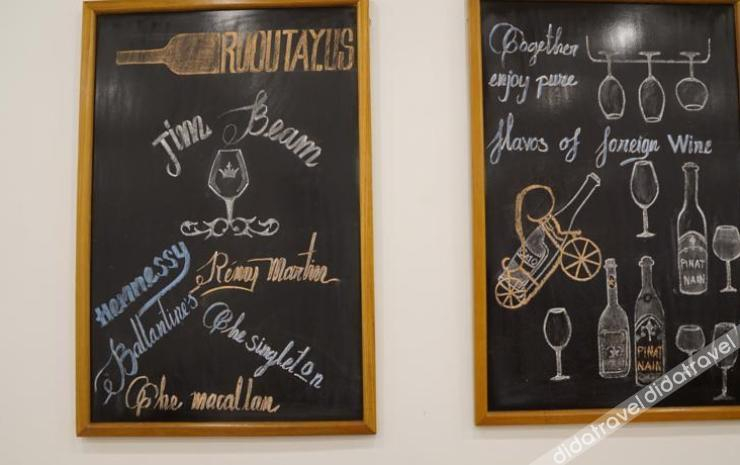 RUOUTAY.US
Jim Beam
Hennessy
Rémy Martin
Ballantine's
The singleton
The macallan
Together
enjoy pure
flavos of foreign Wine
PINAT
NAIN
PINAT
NAIN
didatravel didatravel